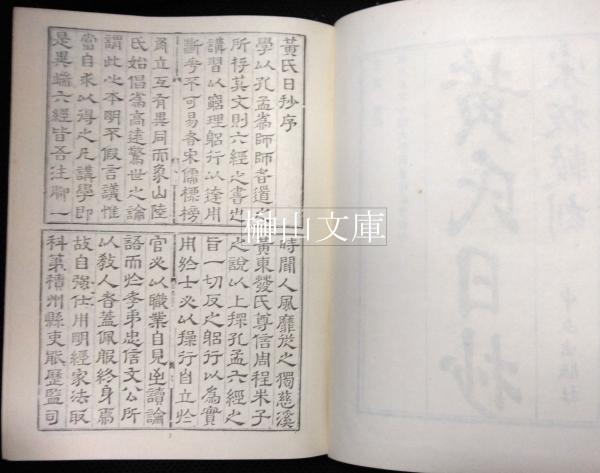 黃氏日抄序
學以孔孟為師師者道之
所存其文則六經之書也
講習以窮理躬行以達用
斷乎不可易者宋儒標榜
角立互有異同而象山陸
氏始倡為高遠驚世之論
謂此心本明不假言議惟
當自求以得之凡講學即
是異端六經皆吾注腳一
時聞人風靡從之獨慈溪
黃東發氏尊信周程朱子
之說以上探孔孟六經之
旨一切反之躬行以為實
用於士必以操行自立於
官必以職業自見凶讀論
語而於孝弟忠信文公所
以教人者蓋佩服終身焉
故自強仕用明經家法取
科第積州縣吏厭歷監司
榊山文庫
黃氏日抄
中文出版社